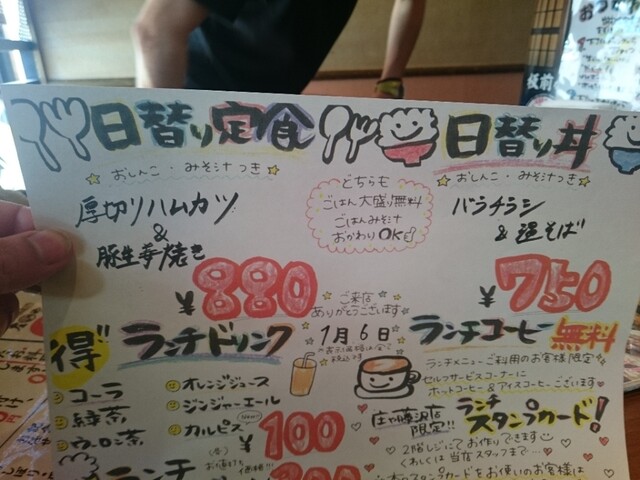 日替り定食
おしんこ・みそ汁つき
厚切りハムカツ
&
豚生姜焼き
¥880
どちらも
ごはん大盛り無料
ごはんみそ汁
おかわりOK
日替り丼
おしんこ・みそ汁つき
バラチラシ
&
¥750
ご来店
ありがとうございます
1月6日
得
ランチドリンク
コーラ
緑茶
ウーロン茶
オレンジジュース
ジンジャーエール
カルピス
¥100
ランチコーヒー無料
ランチメニューご利用のお客様限定
セルフサービスコーナーに
ホットコーヒー&アイスコーヒーございます
庄や藤沢店
限定!!
ランチ
スタンプカード!
2階レジにてお作りできます
くわしくは当店スタッフまで…
スタンプカードをお使いのお客様は
ランチ
板前